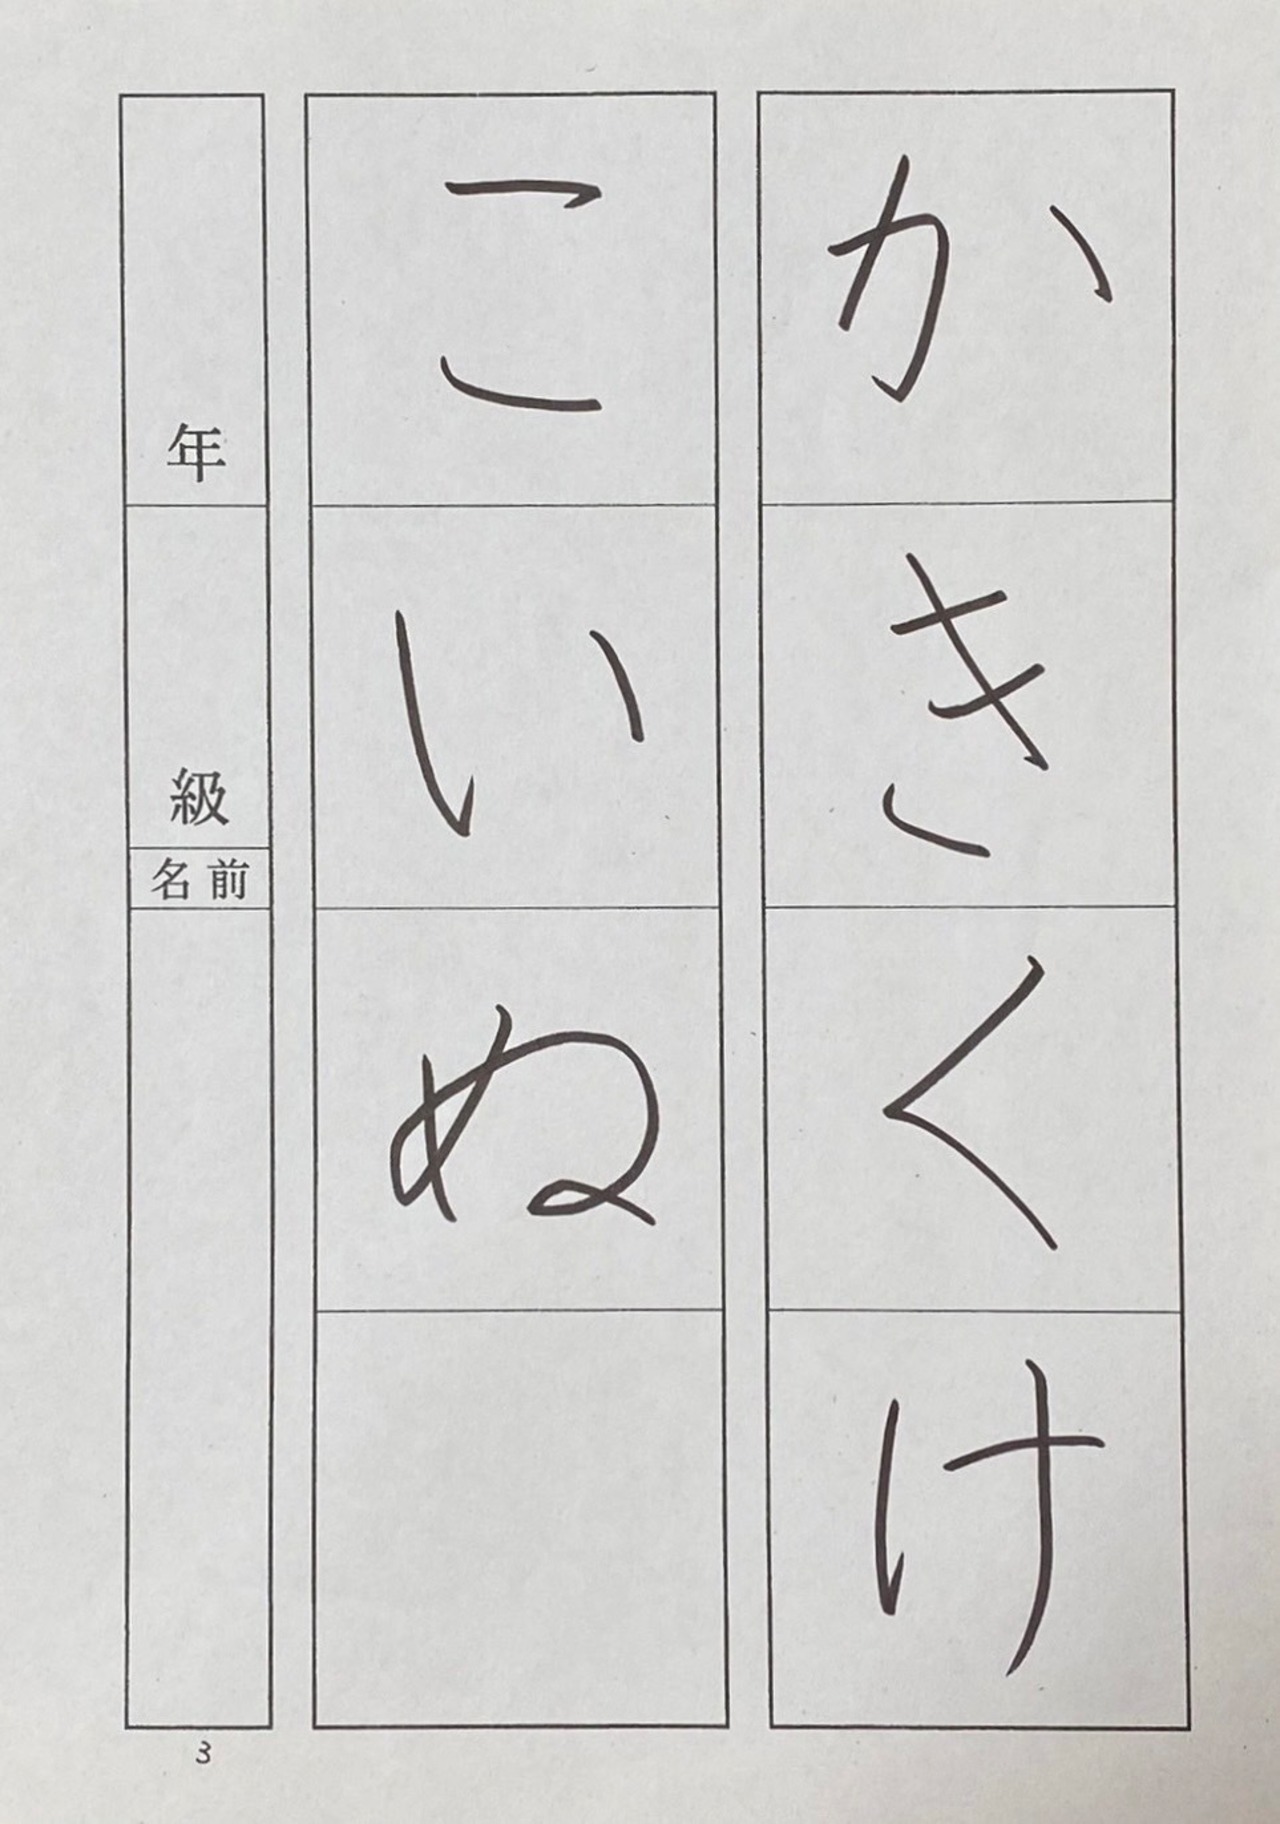 かきくけ
こいぬ
年
級
名前
3